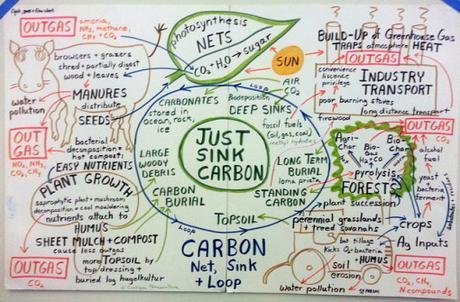 OUTGAS
NH3, methane,
CH4 + CO2
browsers + grazers
shred + partially digest
wood + leaves
water
pollution
MANURES
distribute
SEEDS
OUT
GAS
bacterial
decomposition +
hot compost:
EASY NUTRIENTS
PLANT GROWTH
saprophytic plant + mushroom
decomposition + cool mouldering
nutrients attach to
HUMUS
SHEET MULCH + COMPOST
cause less outgas
more TOPSOIL by
top/dressing +
buried log hugelkultur
OUTGAS
CO2
photosynthesis
NETS
CO2 + H2O → sugar
SUN
AIR
CO2
LOOP
CARBONATES
stored in
ocean, rock,
ice
LARGE
WOODY
DEBRIS
CARBON
BURIAL
JUST
SINK
CARBON
DEEP SINKS
fossil fuels
(oil, gas, coal)
methyl hydrates
LONG TERM
BURIAL
STANDING
CARBON
TOPSOIL
LOOP
CARBON
Net, Sink
+ Loop
BUILD-UP of Greenhouse Gas
TRAPS atmosphere HEAT
OUTGAS
convenience
INDUSTRY
TRANSPORT
poor burning stoves
long distance transport
firewood
Agri-
char
Bio-
Gas
Bio-
Char
pyrolysis
FORESTS
plant succession
perennial grasslands
+ treed savanahs
OUTGAS
CO2
alcohol
fuel
yeast
bacteria
ferment
crops
Ag Inputs
but tillage
kills O2 bacteria
+ HUMUS
soil
erosion
water pollution
OUTGAS
CO2, CH4
N compounds